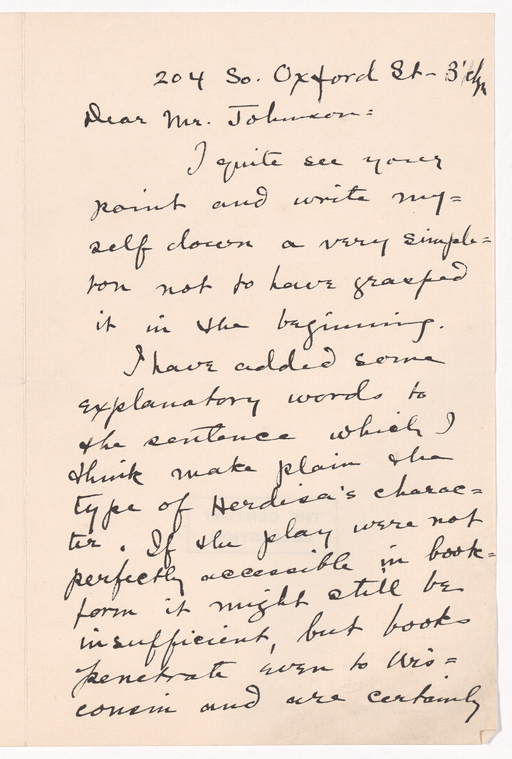 204 So. Oxford St - B'klyn
Dear Mr. Johnson =
I quite see your
point and write my=
self down a very simple=
ton not to have grasped
it in the beginning.
I have added some
explanatory words to
the sentence which I
think make plain the
type of Herdisa's charac=
ter. If the play were not
perfectly accessible in book=
form it might still be
insufficient, but books
penetrate even to Wis=
consin and are certainly